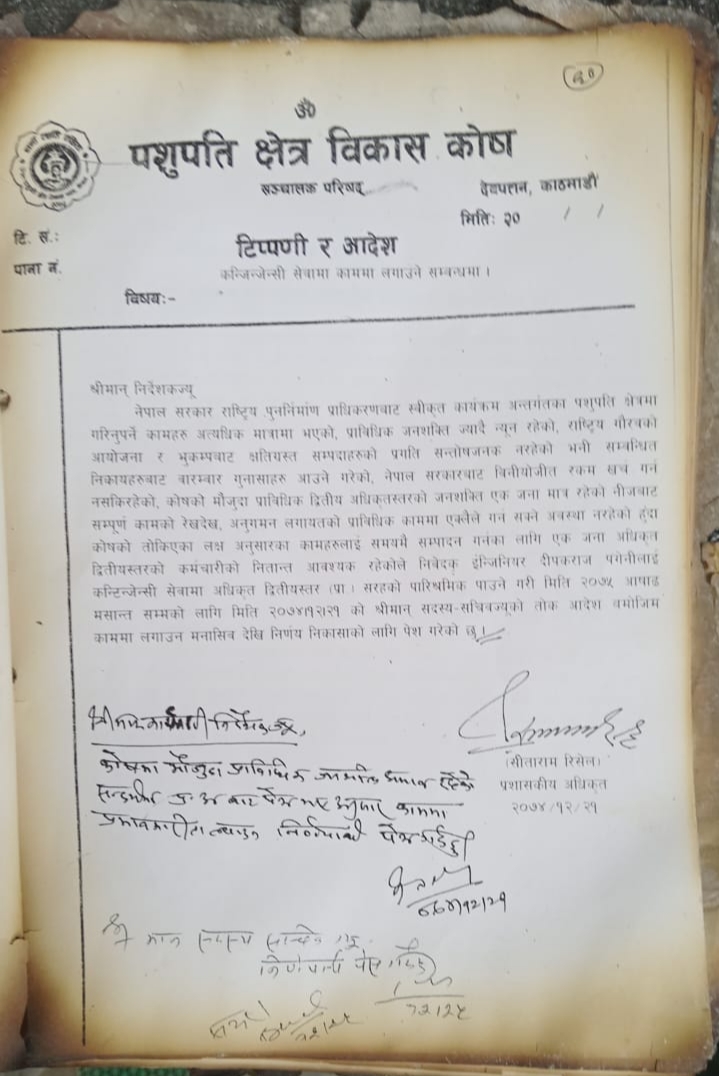 ६०
ॐ
पशुपति क्षेत्र विकास कोष
सञ्चालक परिषद्
देवपत्तन, काठमाडौं
मिति: २० / /
टि. सं.:
टिप्पणी र आदेश
पाना नं.
कन्जिन्जेन्सी सेवामा काममा लगाउने सम्बन्धमा ।
विषय:-
श्रीमान् निर्देशकज्यू
नेपाल सरकार राष्ट्रिय पुननिर्माण प्राधिकरणबाट स्वीकृत कार्यक्रम अन्तर्गतका पशुपति क्षेत्रमा
गरिनुपर्ने कामहरु अत्यधिक मात्रामा भएको, प्राविधिक जनशक्ति ज्यादै न्यून रहेको, राष्ट्रिय गौरवको
आयोजना र भुकम्पबाट क्षतिग्रस्त सम्पदाहरुको प्रगति सन्तोषजनक नरहेको भनी सम्बन्धित
निकायहरुबाट बारम्बार गुनासाहरु आउने गरेको, नेपाल सरकारबाट विनीयोजीत रकम खर्च गर्न
नसकिरहेको, कोषको मौजुदा प्राविधिक द्वितीय अधिकृतस्तरको जनशक्ति एक जना मात्र रहेको नीजबाट
सम्पूर्ण कामको रेखदेख, अनुगमन लगायतको प्राविधिक काममा एक्लैले गर्न सक्ने अवस्था नरहेको हुंदा
कोषको तोकिएका लक्ष अनुसारका कामहरुलाई समयमै सम्पादन गर्नका लागि एक जना अधिकृत
द्वितीयस्तरको कर्मचारीको नितान्त आवश्यक रहेकोले निवेदक इंन्जिनियर दीपकराज पगेनीलाई
कन्टिन्जेन्सी सेवामा अधिकृत द्वितीयस्तर (प्रा) सरहको पारिश्रमिक पाउने गरी मिति २०७५ आषाढ
मसान्त सम्मको लागि मिति २०७४।१२।२१ को श्रीमान् सदस्य-सचिवज्यूको तोक आदेश बमोजिम
काममा लगाउन मनासिव देखि निर्णय निकासाको लागि पेश गरेको छु।
(सीताराम रिसेल)
प्रशासकीय अधिकृत
२०७४/१२/२१
कोषका मौजुदा प्राविधिक
काममा
७४।१२।२१
श्री मान सदस्य सचिव ज्यू
निर्णयार्थ पेस
१२।२५